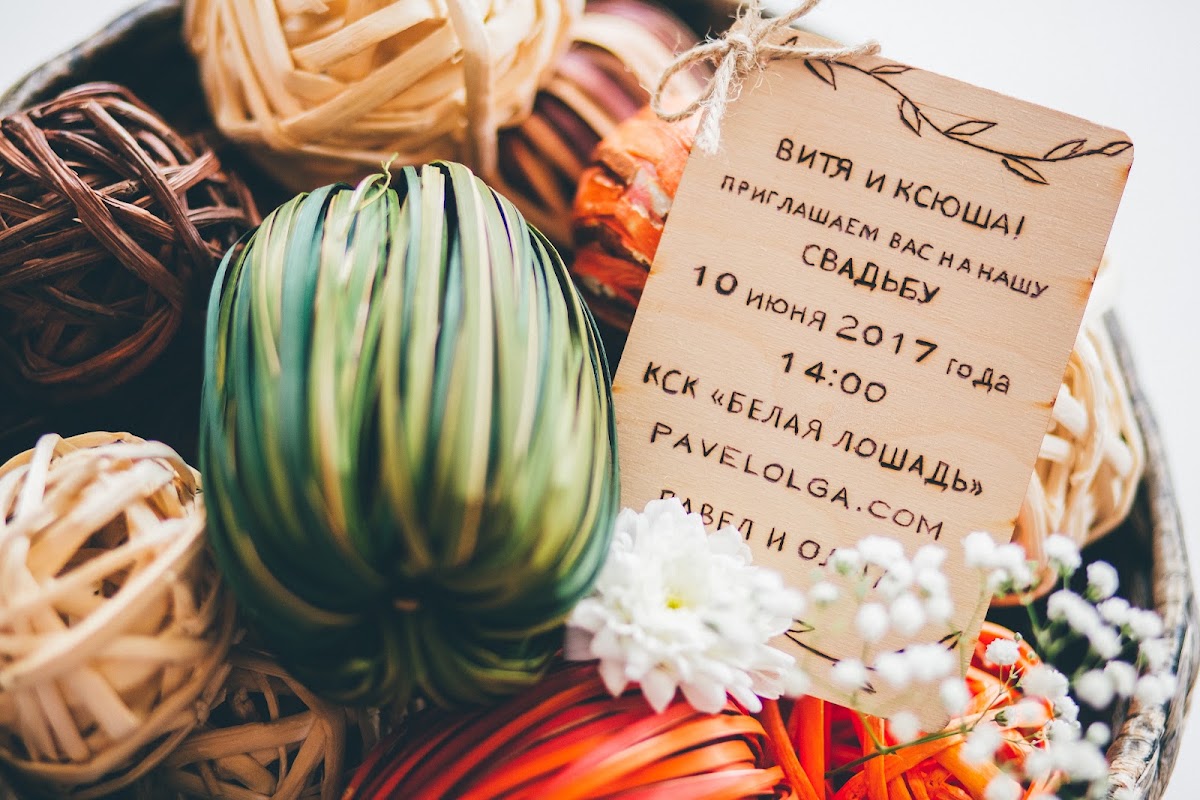 ВИТЯ И КСЮША!
ПРИГЛАШАЕМ ВАС НА НАШУ
СВАДЬБУ
10 ИЮНЯ 2017 года
14:00
КСК «БЕЛАЯ ЛОШАДЬ»
PAVELOLGA.COM
ПАВЕЛ И